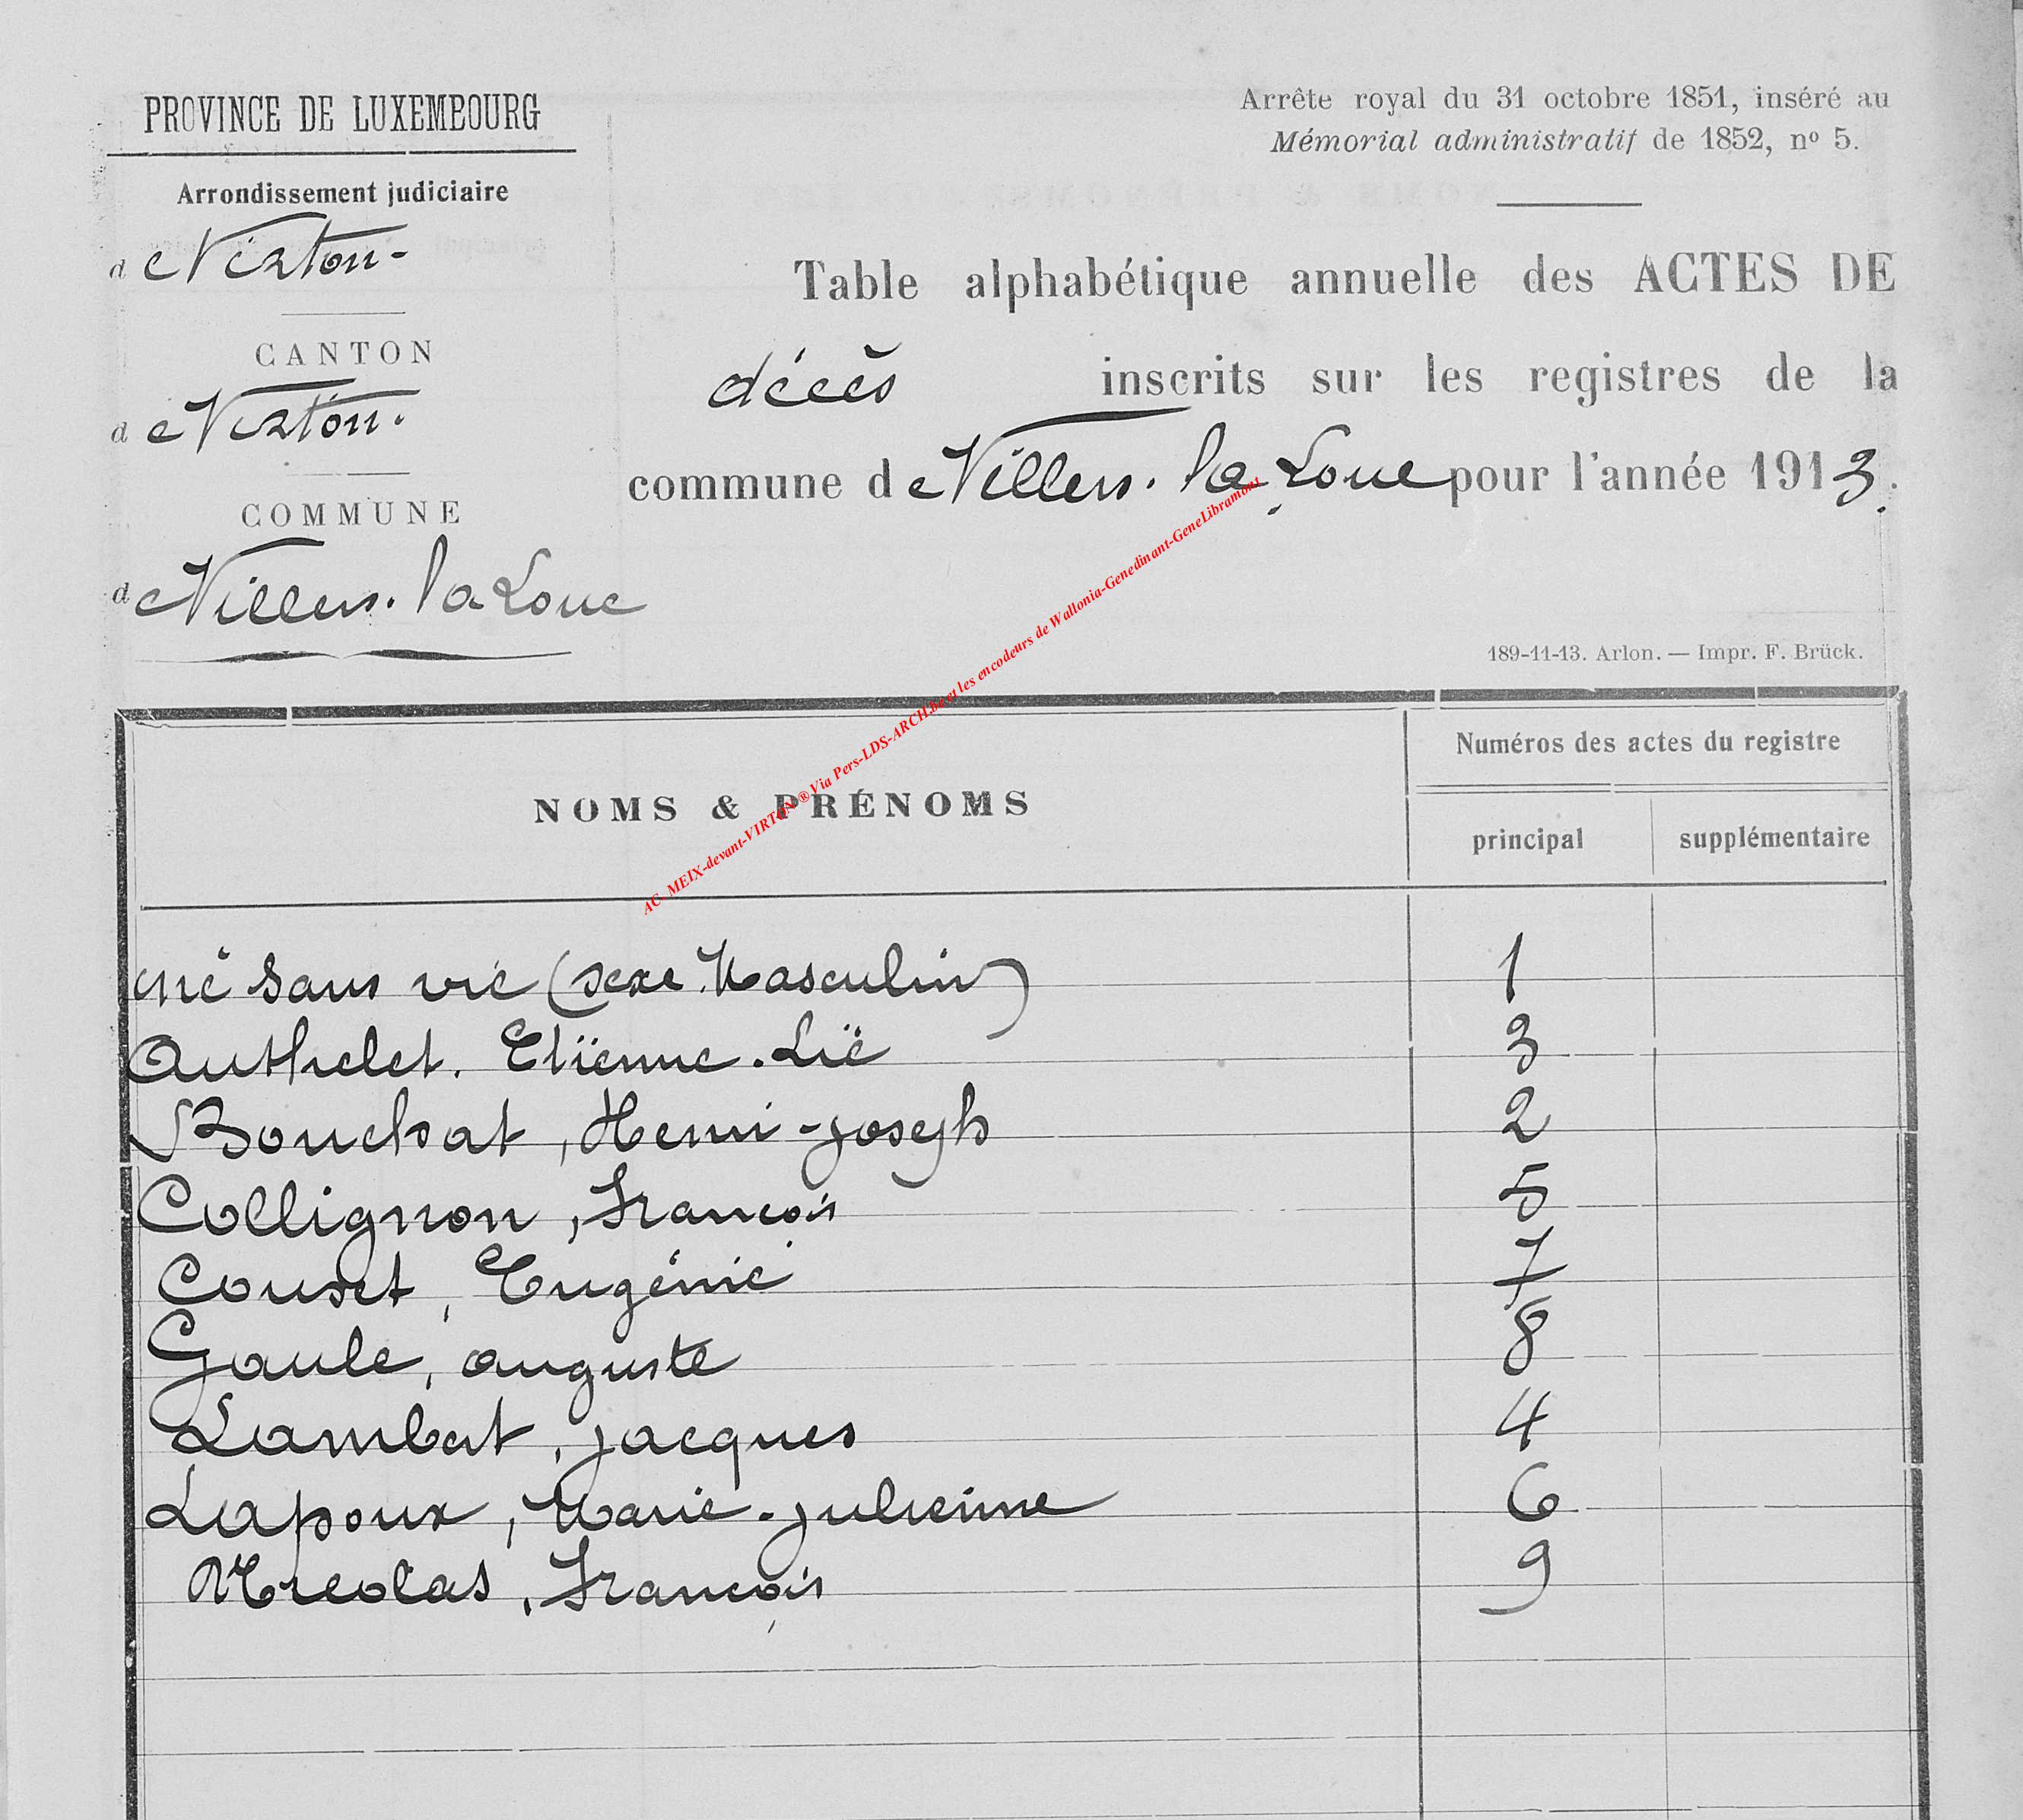 PROVINCE DE LUXEMBOURG
Arrondissement judiciaire
de Virton-
CANTON
de Virton.
COMMUNE
de Villers-la-Loue
Arrête royal du 31 octobre 1851, inséré au
Mémorial administratif de 1852, nº 5.
Table alphabétique annuelle des ACTES DE
décès inscrits sur les registres de la
commune de Villers-la-Loue pour l'année 1913.
189-11-13. Arlon. — Impr. F. Brück.
AC_MEIX-devant-VIRTON ® Via Pers-LDS-ARCH.be et les encodeurs de Wallonia-Genedinant-GeneLibramont
NOMS & PRÉNOMS
Numéros des actes du registre
principal supplémentaire
né sans vie (sexe Masculin) 1
Authelet. Etienne. Lié 3
Bouchat, Henri-joseph 2
Collignon, François 5
Couset, Eugénie 7
Gaule, auguste 8
Lambert, jacques 4
Lapoux, Marie-julienne 6
Nicolas, François 9